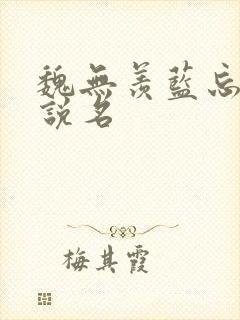 魏無羨藍忘
說名
梅其霞